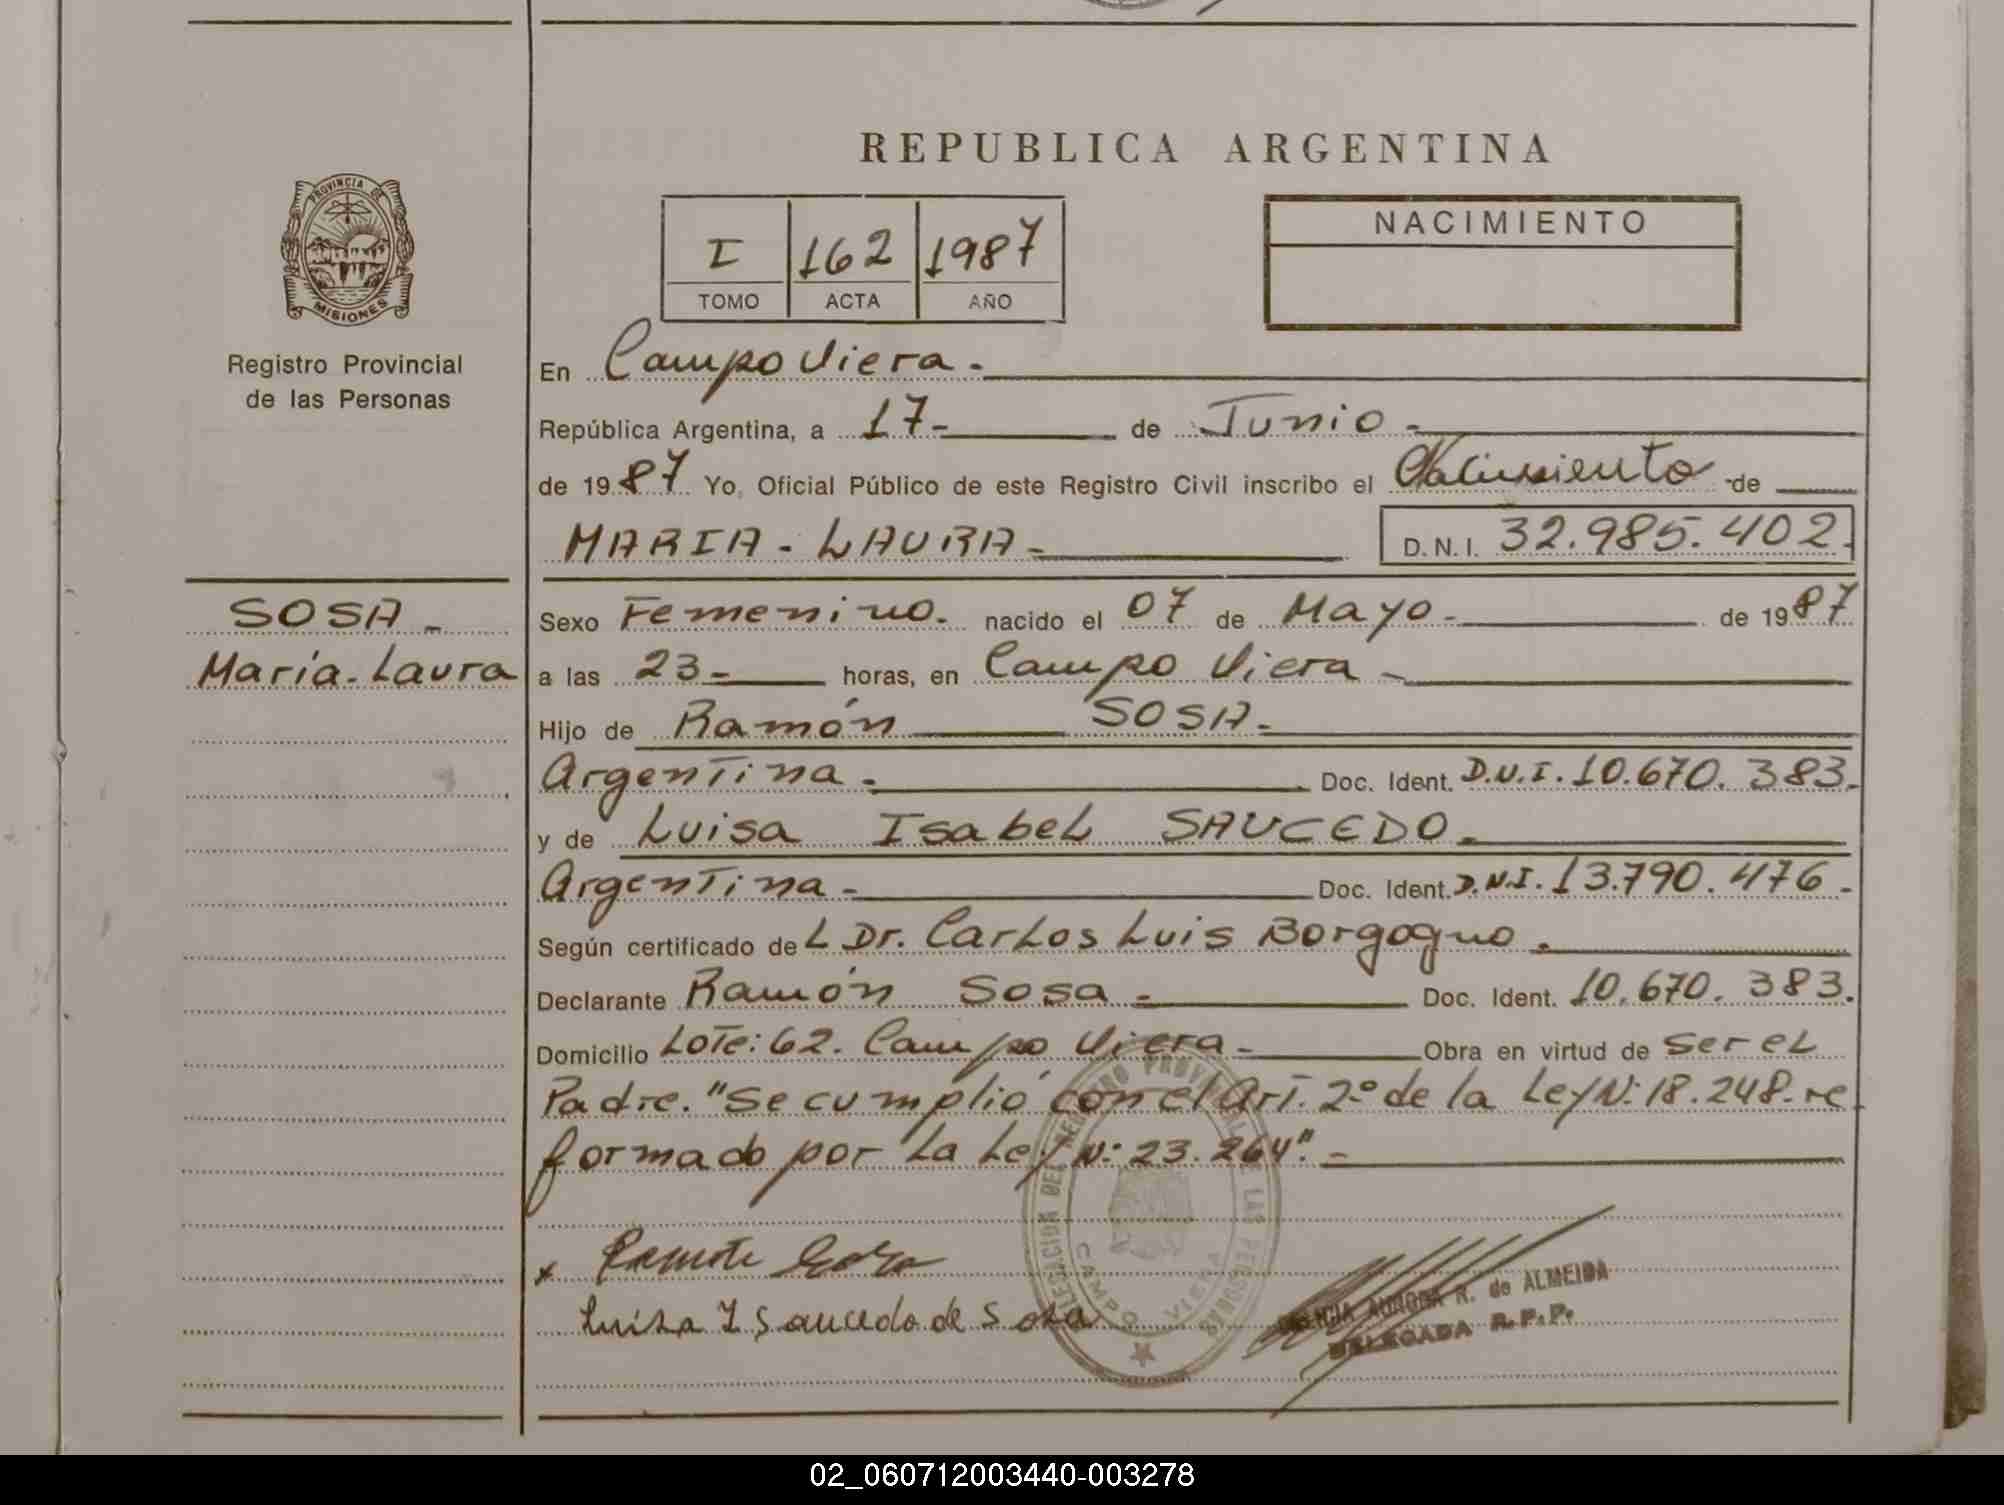 REPUBLICA ARGENTINA
PROVINCIA DE
MISIONES
Registro Provincial
de las Personas
I 162 1987
TOMO ACTA AÑO
NACIMIENTO
En Campo Viera.-
República Argentina, a 17- de Junio.-
de 1987 Yo, Oficial Público de este Registro Civil inscribo el Nacimiento de
MARIA-LAURA- D.N.I. 32.985.402.
SOSA-
María-Laura
Sexo Femenino. nacido el 07 de Mayo- de 1987
a las 23- horas, en Campo Viera-
Hijo de Ramón SOSA-
Argentina- Doc. Ident. D.N.I. 10.670.383.-
y de Luisa Isabel SAUCEDO.-
Argentina- Doc. Ident. D.N.I. 13.790.476.-
Según certificado del Dr. Carlos Luis Borgogno.
Declarante Ramón Sosa- Doc. Ident. 10.670.383.
Domicilio Lote: 62. Campo Viera- Obra en virtud de ser el
Padre. "Se cumplió con el Art. 2º de la Ley Nº: 18.248-re
formado por la Ley Nº: 23.264".-
DELEGACION DEL REGISTRO PROVINCIAL DE LAS PERSONAS
CAMPO VIERA
Luisa I Saucedo de Sosa
AURORA R. de ALMEIDA
DELEGADA R.P.P.
02_060712003440-003278